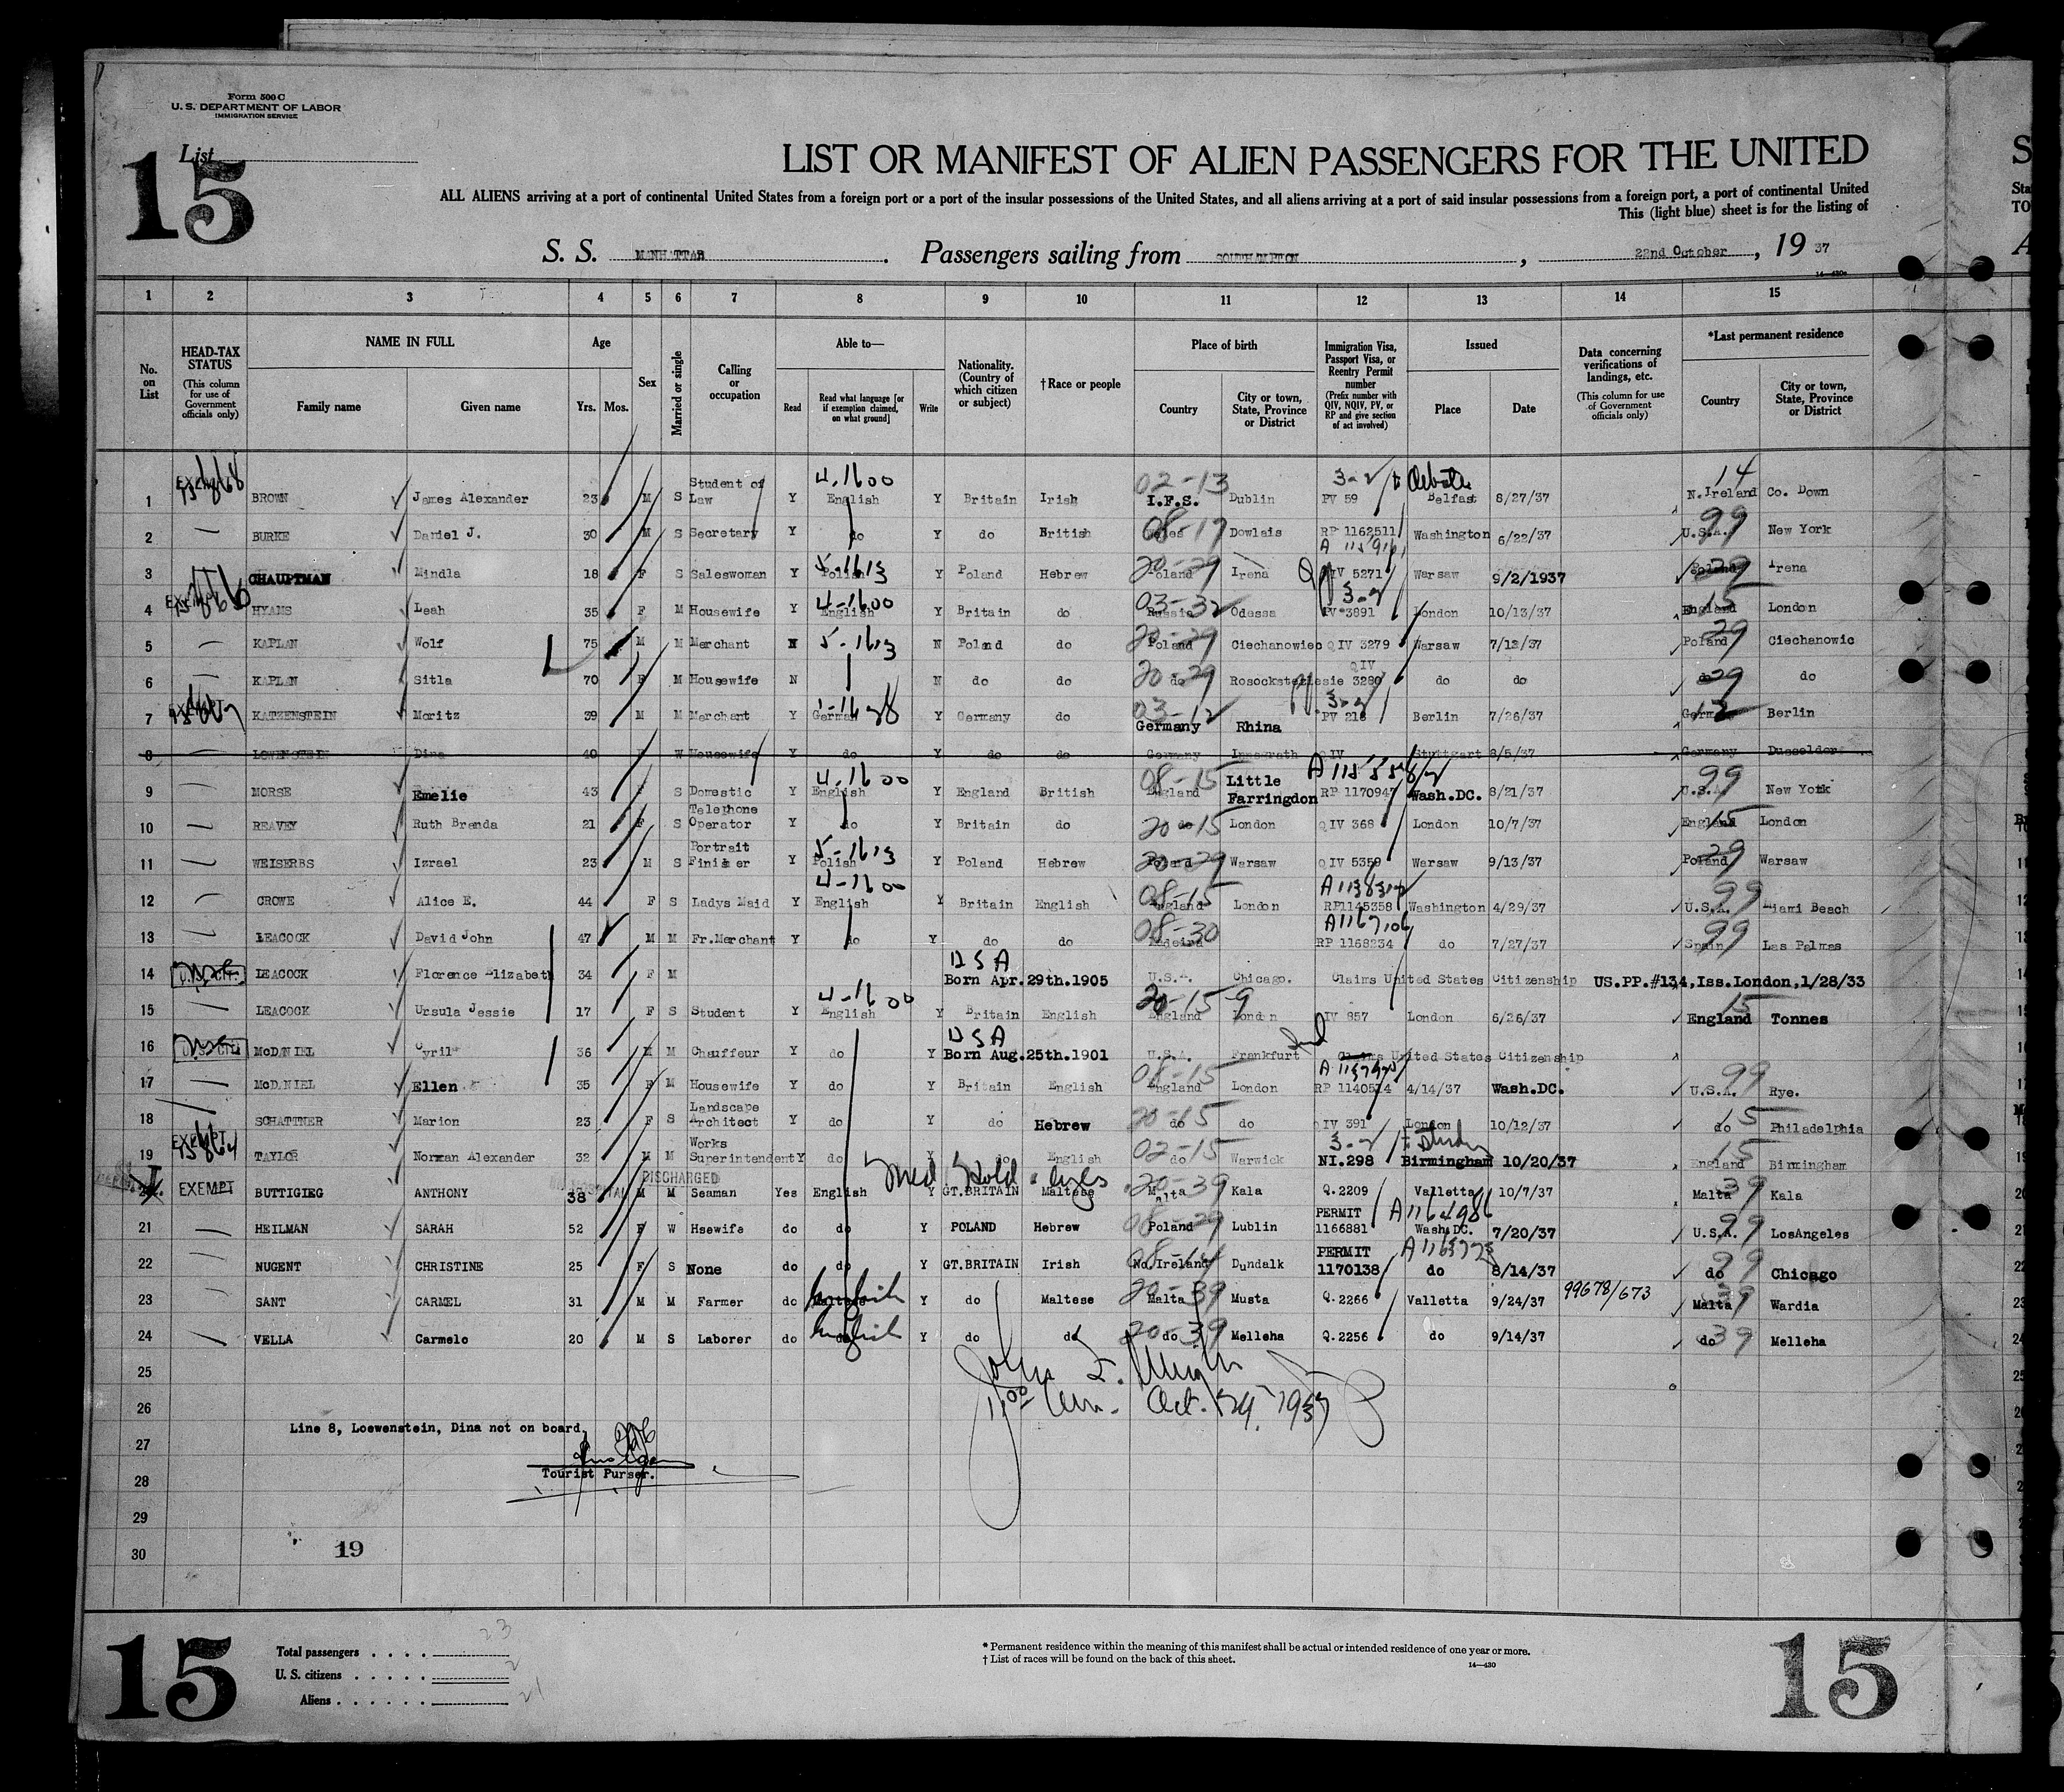 Form 500 C
U. S. DEPARTMENT OF LABOR
IMMIGRATION SERVICE
List
15
LIST OR MANIFEST OF ALIEN PASSENGERS FOR THE UNITED
ALL ALIENS arriving at a port of continental United States from a foreign port or a port of the insular possessions of the United States, and all aliens arriving at a port of said insular possessions from a foreign port, a port of continental United
This (light blue) sheet is for the listing of
S. S. MANHATTAN. Passengers sailing from SOUTHAMPTON, 22nd October, 19 37
14—430a
1 2 3 4 5 6 7 8 9 10 11 12 13 14 15
No. on List
HEAD-TAX STATUS (This column for use of Government officials only)
NAME IN FULL Family name Given name
Age Yrs. Mos.
Sex
Married or single
Calling or occupation
Able to— Read Read what language [or if exemption claimed, on what ground] Write
Nationality. (Country of which citizen or subject)
†Race or people
Place of birth Country City or town, State, Province or District
Immigration Visa, Passport Visa, or Reentry Permit number (Prefix number with QIV, NQIV, PV, or RP and give section of act involved)
Issued Place Date
Data concerning verifications of landings, etc. (This column for use of Government officials only)
*Last permanent residence Country City or town, State, Province or District
1 EXEMPT BROWN James Alexander 23 M S Student of Law Y 4-1600 English Y Britain Irish 02-13 I.F.S. Dublin 3-2 PV 59 Belfast 8/27/37 14 N.Ireland Co. Down
2 — BURKE Daniel J. 30 M S Secretary Y do Y do British 08-17 Wales Dowlais RP 1162511 Washington 6/22/37 99 U.S.A. New York
3 CHAUPTMAN Mindla 18 F S Saleswoman Y 5-1613 Polish Y Poland Hebrew 20-29 Poland Irena QIV 5271 Warsaw 9/2/1937 29 Poland Irena
4 EXEMPT HYAMS Leah 35 F M Housewife Y 4-1600 English Y Britain do 03-32 Russia Odessa 3-2 PV 3891 London 10/13/37 15 England London
5 — KAPLAN Wolf 75 M M Merchant N 5-1613 N Poland do 20-29 Poland Ciechanowiec QIV 3279 Warsaw 7/12/37 29 Poland Ciechanowic
6 — KAPLAN Sitla 70 F M Housewife N N do do 20-29 do QIV 3280 do do 29 do do
7 EXEMPT KATZENSTEIN Moritz 39 M M Merchant Y German Y Germany do 03-12 Germany Rhina 3-2 PV 216 Berlin 7/26/37 12 Germany Berlin
8 — LOWENSTEIN Dina 40 F W Housewife Y do Y do do Germany QIV Stuttgart 8/5/37 Germany Dusseldorf
9 — MORSE Emelie 43 F S Domestic Y 4-1600 English Y England British 08-15 England Little Farringdon RP 1170947 Wash.DC. 8/21/37 99 U.S.A. New York
10 — REAVEY Ruth Brenda 21 F S Telephone Operator Y do Y Britain do 20-15 do London QIV 368 London 10/7/37 15 England London
11 — WEISERBS Izrael 23 M S Portrait Finisher Y 5-1613 Polish Y Poland Hebrew 20-29 Poland Warsaw QIV 5359 Warsaw 9/13/37 29 Poland Warsaw
12 — CROWE Alice E. 44 F S Ladys Maid Y 4-1600 English Y Britain English 08-15 England London RP1145358 Washington 4/29/37 99 U.S.A. Miami Beach
13 — LEACOCK David John 47 M M Fr.Merchant Y do Y do do 08-30 Madeira A1167106 RP 1168234 do 7/27/37 99 Spain Las Palmas
14 U.S. CIT. LEACOCK Florence Elizabeth 34 F M U S A Born Apr.29th.1905 U.S.A. Chicago. Claims United States Citizenship US.PP.#134,Iss.London,1/28/33
15 — LEACOCK Ursula Jessie 17 F S Student Y 4-1600 English Y Britain English 20-15 England London QIV 857 London 6/26/37 15 England Tonnes
16 U.S. CIT. McDANIEL Cyril 36 M M Chauffeur Y do Y U S A Born Aug.25th.1901 U.S.A. Frankfurt Ind Claims United States Citizenship
17 — McDANIEL Ellen 35 F M Housewife Y do Y Britain English 08-15 England London RP 1140514 4/14/37 Wash.DC. 99 U.S.A. Rye.
18 — SCHATTNER Marion 23 F S Landscape Architect Y do Y do Hebrew 20-15 do do QIV 391 London 10/12/37 15 do Philadelphia
19 EXEMPT TAYLOR Norman Alexander 32 M M Works Superintendent Y do Y do English 02-15 do Warwick 3-2 NI.298 Birmingham 10/20/37 15 England Birmingham
20 EXEMPT BUTTIGIEG ANTHONY 38 DISCHARGED M M Seaman Yes English Med Hold eyes Y GT.BRITAIN Maltese 20-39 Malta Kala Q.2209 Valletta 10/7/37 39 Malta Kala
21 — HEILMAN SARAH 52 F W Hsewife do do Y POLAND Hebrew 08-29 Poland Lublin PERMIT 1166881 A1164986 Wash.DC. 7/20/37 99 U.S.A. LosAngeles
22 — NUGENT CHRISTINE 25 F S None do do Y GT.BRITAIN Irish 08-14 No.Ireland Dundalk PERMIT 1170138 do 8/14/37 99 do Chicago
23 — SANT CARMEL 31 M M Farmer do English Y do Maltese 20-39 Malta Musta Q.2266 Valletta 9/24/37 99678/673 39 Malta Wardia
24 — VELLA Carmelo 20 M S Laborer do English Y do do 20-39 do Melleha Q.2256 do 9/14/37 39 do Melleha
25
26
27
28
29
30
11:00 am. Oct. 29, 1937
Line 8, Loewenstein, Dina not on board.
Tourist Purser.
19
15
Total passengers . . . . 23
U. S. citizens . . . . . 2
Aliens . . . . . . 21
* Permanent residence within the meaning of this manifest shall be actual or intended residence of one year or more.
† List of races will be found on the back of this sheet.
14—430
15